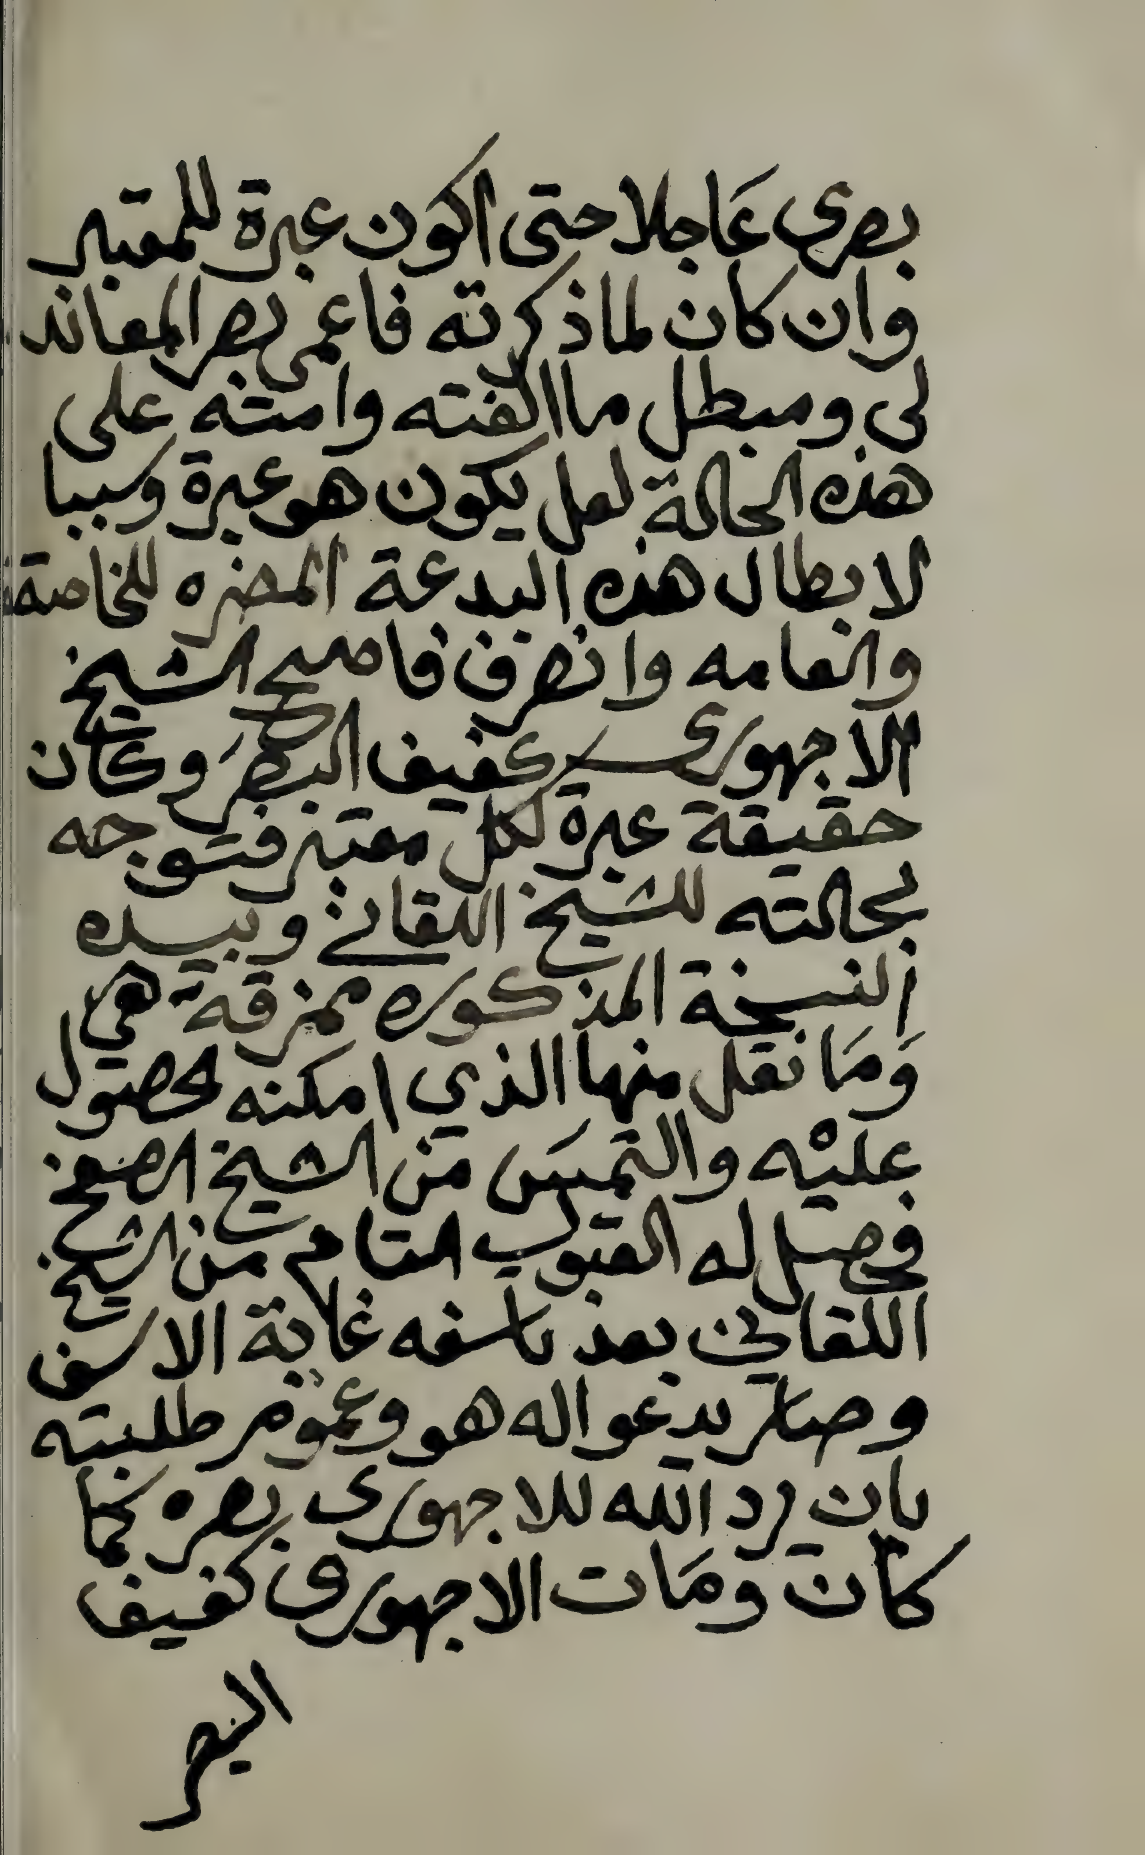 بصرى عاجلا حتى اكون عبرة للمعتبر
وان كان لما ذكرته فاعمى بصر المعاند
لى ومبطل ما الفته وامته على
هذه الحالة لعل يكون هو عبرة وسببا
لابطال هذه البدعة المضره للخاصة
والعامه وانصرف فاصبح الشيخ
الاجهورى كفيف البصر وكان
حقيقة عبرة لكل معتبر فتوجه
بحالته للشيخ اللقانى وبيده
النسخة المذكوره ممزقة هى
وَمَا نقل منها الذي امكنه لحصول
عليْه والتمسَ من الشيخ الصفح
فحصل له القبول التام من الشيخ
اللقاني بعد تاسفه غاية الاسف
وصار يدعوا له هو وعموم طلبته
بان رد الله للاجهورى بصره كما
كان ومَات الاجهورى كفيف
البصر